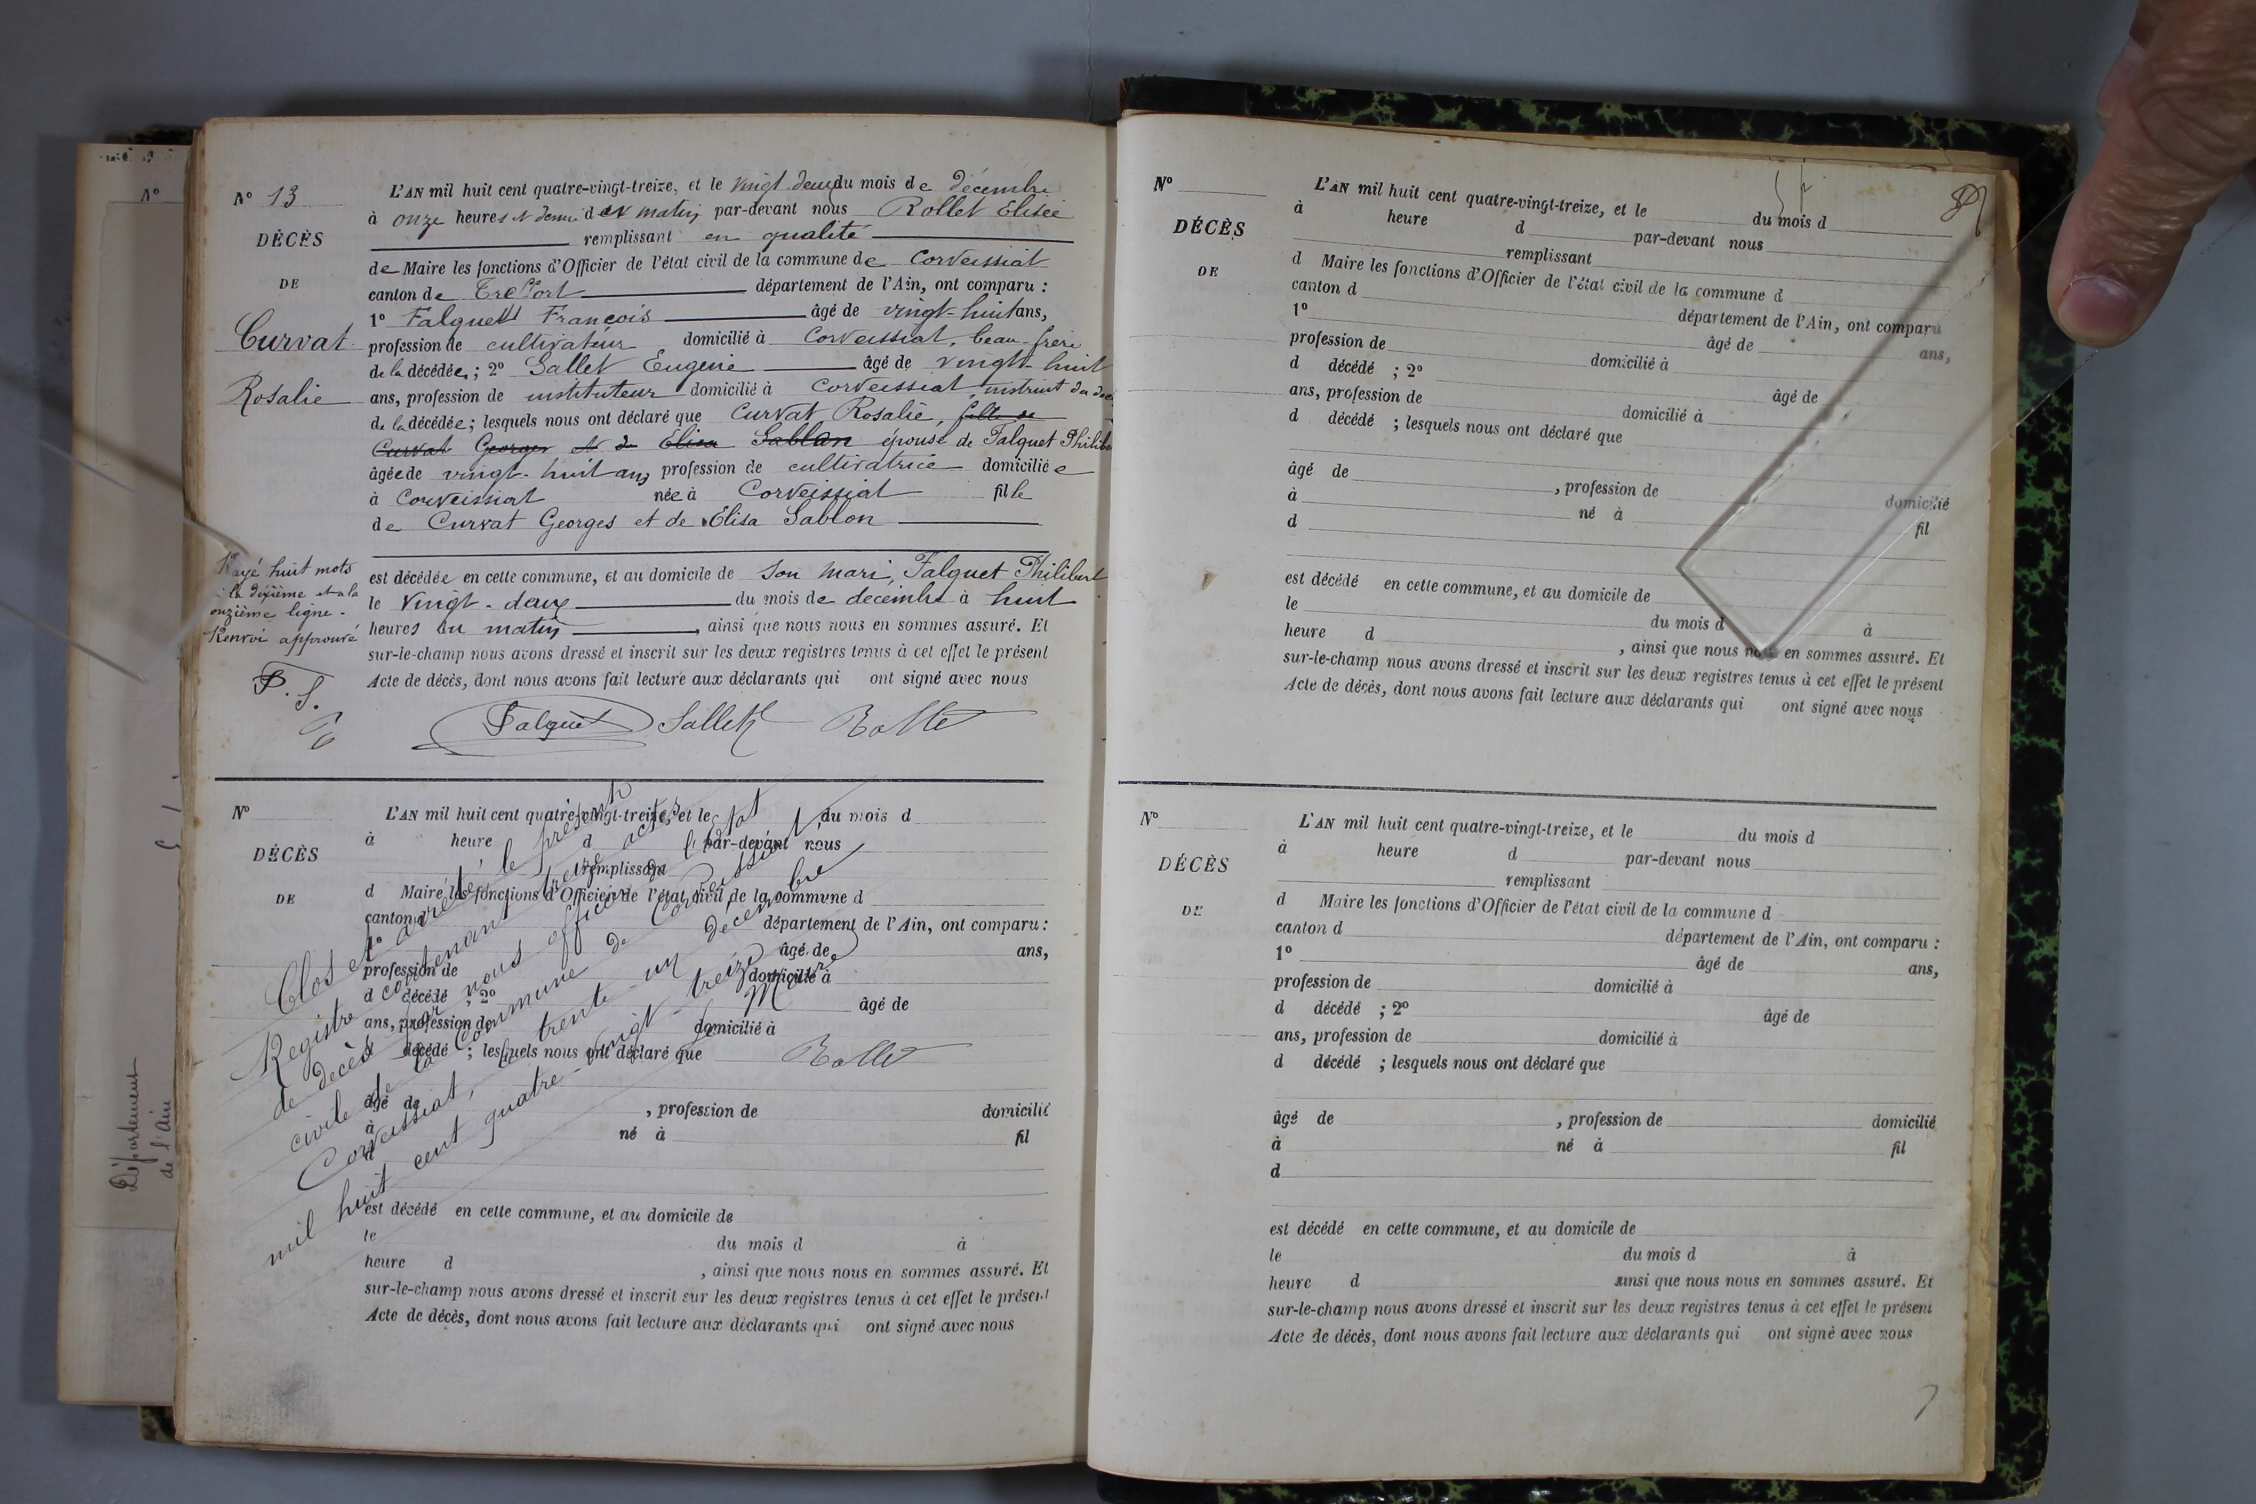 N° 13
DÉCÈS
DE
Curvat
Rosalie
L'AN mil huit cent quatre-vingt-treize, et le vingt deux du mois de décembre
à onze heures et demie du matin par-devant nous Rollet Elisée
remplissant en qualité
de Maire les fonctions d'Officier de l'état civil de la commune de Corveissiat
canton de Treffort département de l'Ain, ont comparu :
1° Falquet François âgé de vingt-huit ans,
profession de cultivateur domicilié à Corveissiat, beau-frère
de la décédée ; 2° Sallet Eugène âgé de vingt-huit
ans, profession de instituteur domicilié à Corveissiat
de la décédée ; lesquels nous ont déclaré que Curvat Rosalie, fille de
Curvat Georges et de Elisa Sablon épouse de Falquet Philib
âgée de vingt-huit ans profession de cultivatrice domiciliée
à Corveissiat née à Corveissiat fille
de Curvat Georges et de Elisa Sablon
est décédée en cette commune, et au domicile de son mari, Falquet Philibert
le vingt-deux du mois de décembre à huit
heures du matin, ainsi que nous nous en sommes assuré. Et
sur-le-champ nous avons dressé et inscrit sur les deux registres tenus à cet effet le présent
Acte de décès, dont nous avons fait lecture aux déclarants qui ont signé avec nous
Rayé huit mots
à la dixième et à la
onzième ligne.
Renvoi approuvé
Falquet Sallet Rollet
N°
DÉCÈS
DE
L'AN mil huit cent quatre-vingt-treize, et le du mois d
à heure d par-devant nous
remplissant
d Maire les fonctions d'Officier de l'état civil de la commune d
canton d département de l'Ain, ont comparu :
1° âgé de ans,
profession de domicilié à
d décédé ; 2° âgé de
ans, profession de domicilié à
d décédé ; lesquels nous ont déclaré que
âgé de , profession de domicilié
à né à fil
d
est décédé en cette commune, et au domicile de
le du mois d à
heure d , ainsi que nous nous en sommes assuré. Et
sur-le-champ nous avons dressé et inscrit sur les deux registres tenus à cet effet le présent
Acte de décès, dont nous avons fait lecture aux déclarants qui ont signé avec nous
Clos et arrêté le présent
Registre contenant treize actes
de décès par nous officier de l'état
civil de la commune de Corveissiat,
Corveissiat, le trente-un décembre
mil huit cent quatre-vingt-treize
Le Maire
Rollet
Département
de l'Ain
N°
DÉCÈS
DE
L'AN mil huit cent quatre-vingt-treize, et le du mois d
à heure d par-devant nous
remplissant
d Maire les fonctions d'Officier de l'état civil de la commune d
canton d département de l'Ain, ont comparu
1° âgé de ans,
profession de domicilié à
d décédé ; 2° âgé de
ans, profession de domicilié à
d décédé ; lesquels nous ont déclaré que
âgé de , profession de domicilié
à né à fil
d
est décédé en cette commune, et au domicile de
le du mois d à
heure d , ainsi que nous nous en sommes assuré. Et
sur-le-champ nous avons dressé et inscrit sur les deux registres tenus à cet effet le présent
Acte de décès, dont nous avons fait lecture aux déclarants qui ont signé avec nous
N°
DÉCÈS
DE
L'AN mil huit cent quatre-vingt-treize, et le du mois d
à heure d par-devant nous
remplissant
d Maire les fonctions d'Officier de l'état civil de la commune d
canton d département de l'Ain, ont comparu :
1° âgé de ans,
profession de domicilié à
d décédé ; 2° âgé de
ans, profession de domicilié à
d décédé ; lesquels nous ont déclaré que
âgé de , profession de domicilié
à né à fil
d
est décédé en cette commune, et au domicile de
le du mois d à
heure d ainsi que nous nous en sommes assuré. Et
sur-le-champ nous avons dressé et inscrit sur les deux registres tenus à cet effet le présent
Acte de décès, dont nous avons fait lecture aux déclarants qui ont signé avec nous